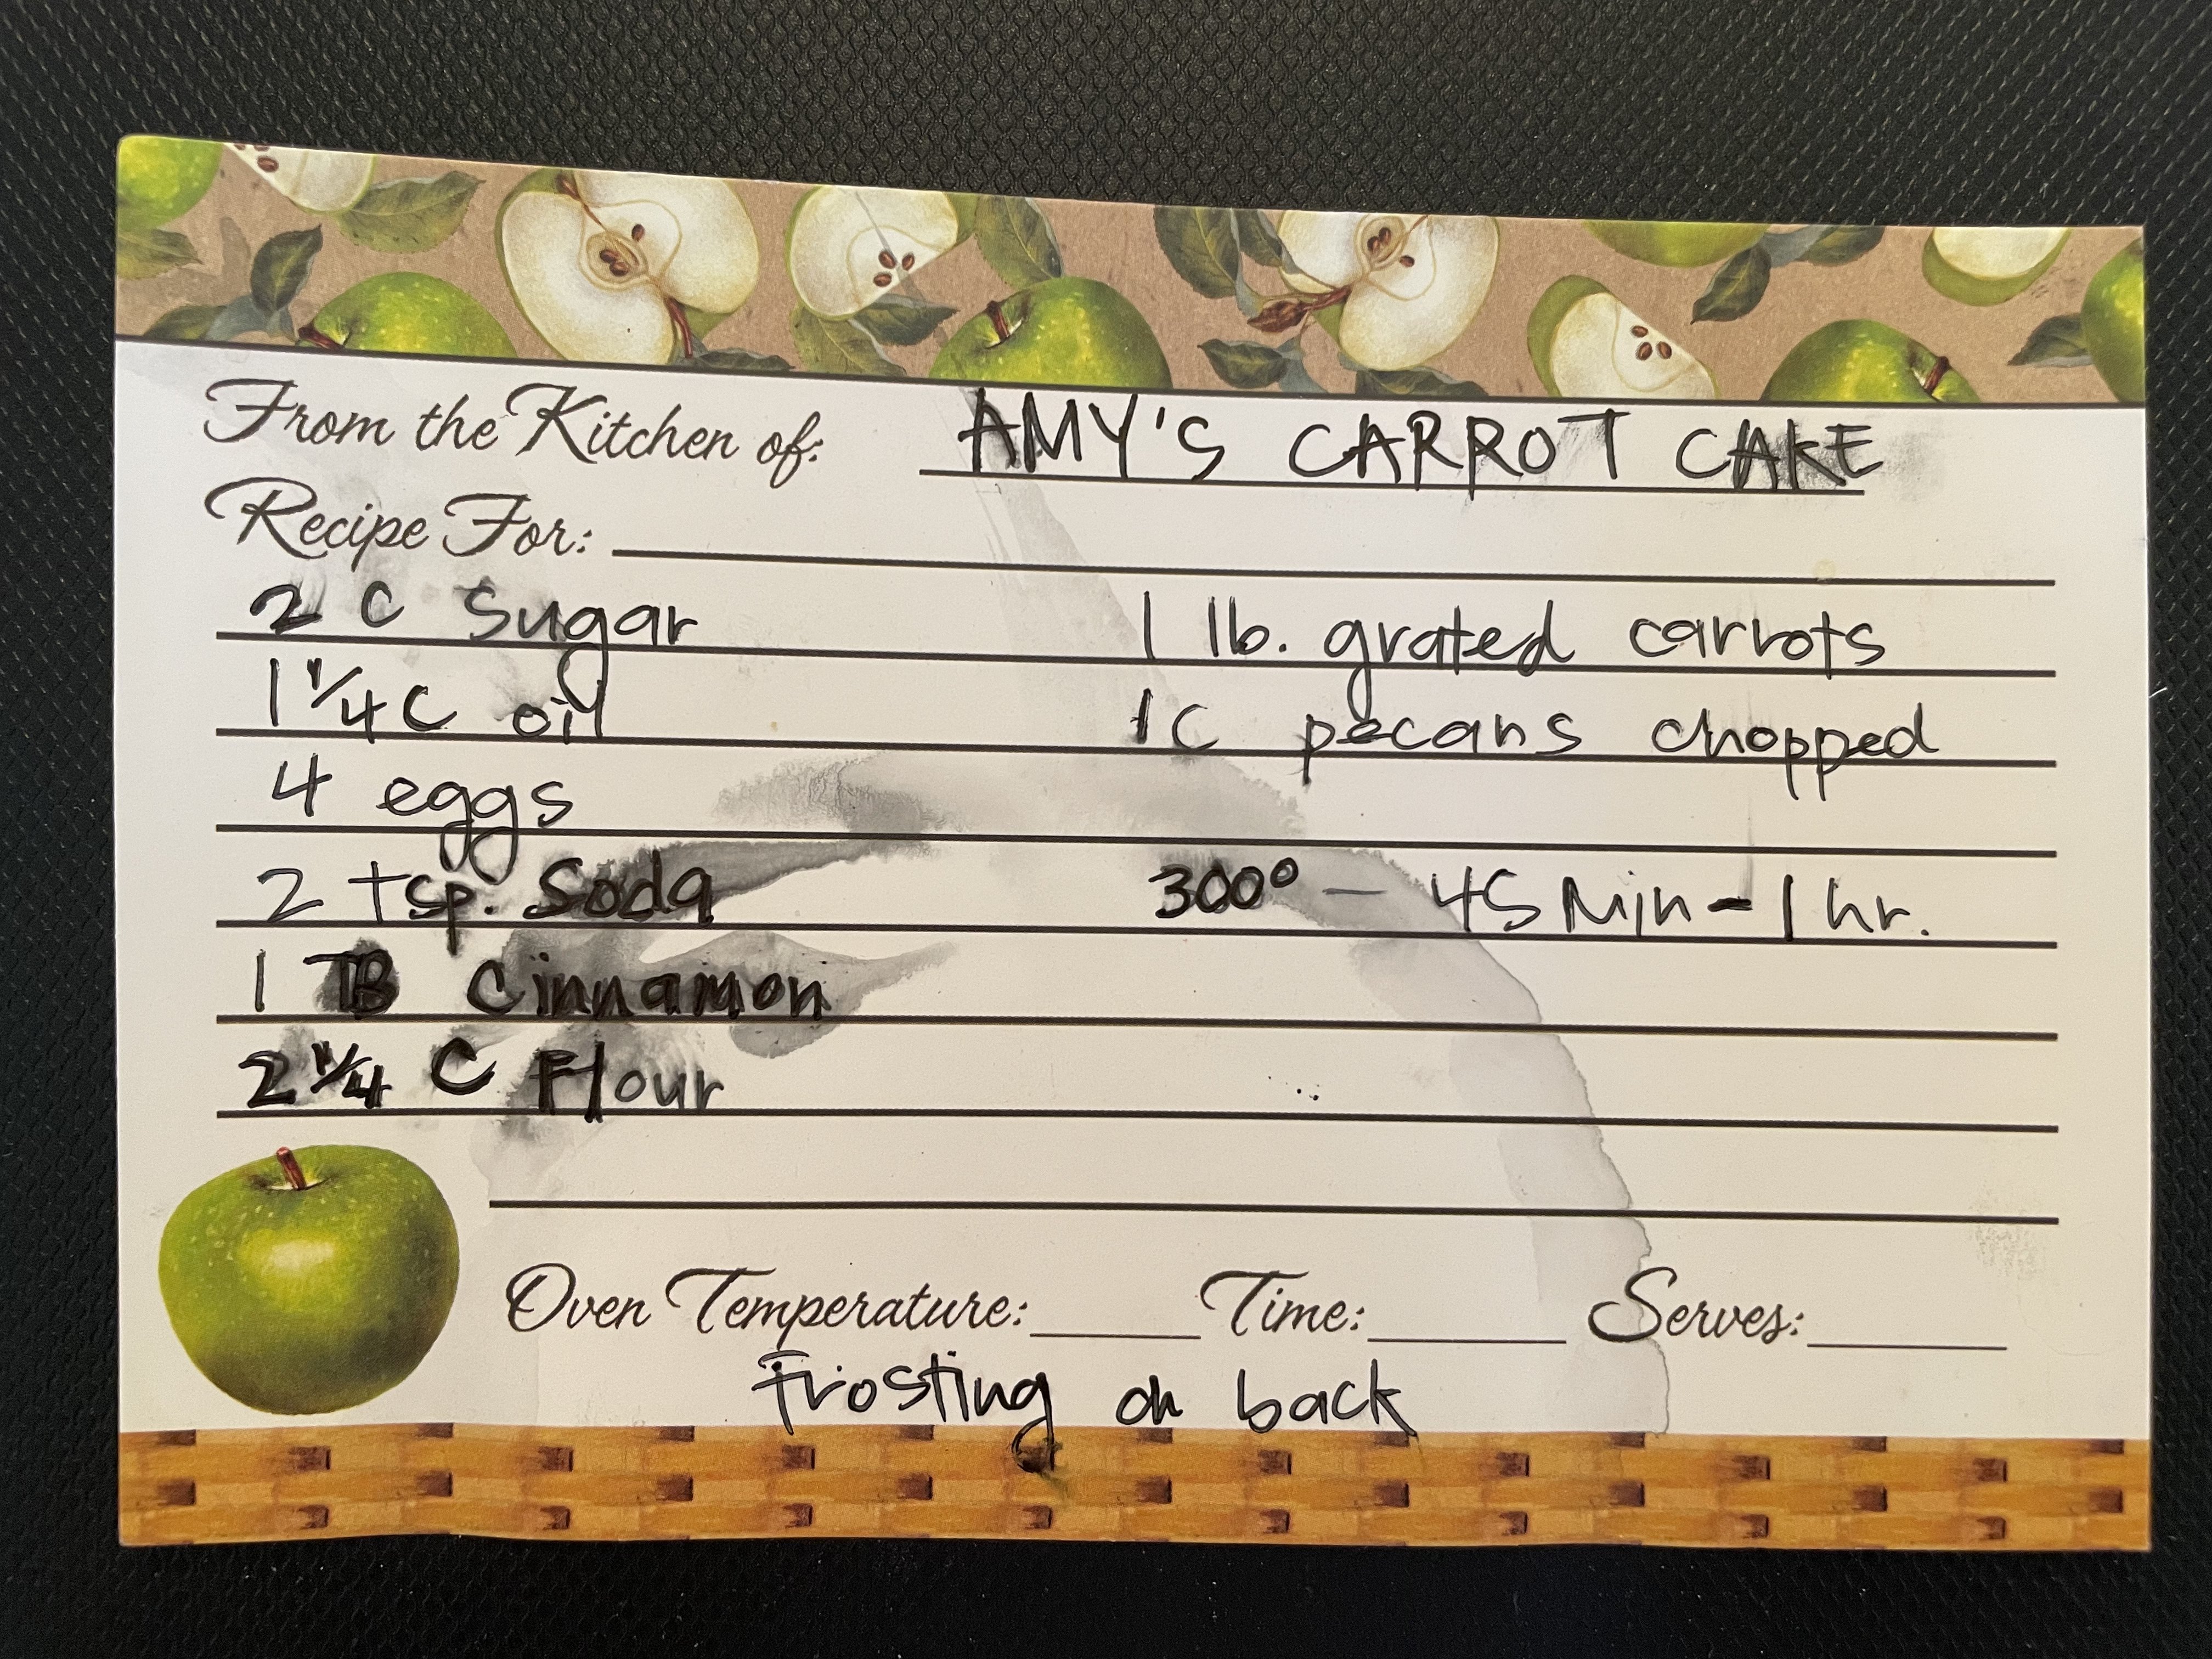 From the Kitchen of: AMY'S CARROT CAKE
Recipe For:
2 C Sugar
1 1/4 C oil
4 eggs
2 tsp. Soda
1 TB Cinnamon
2 1/4 C Flour
1 lb. grated carrots
1C pecans chopped
300° — 45 Min - 1 hr.
Oven Temperature: Time: Serves:
Frosting on back